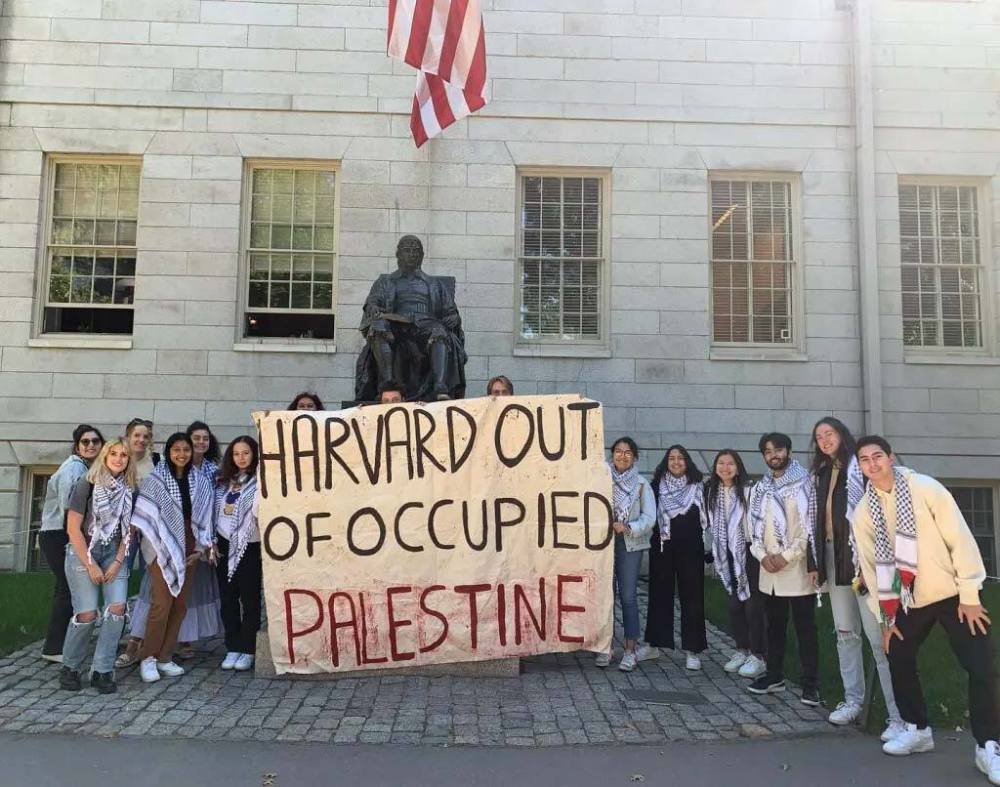 HARVARD OUT
OF OCCUPIED
PALESTINE